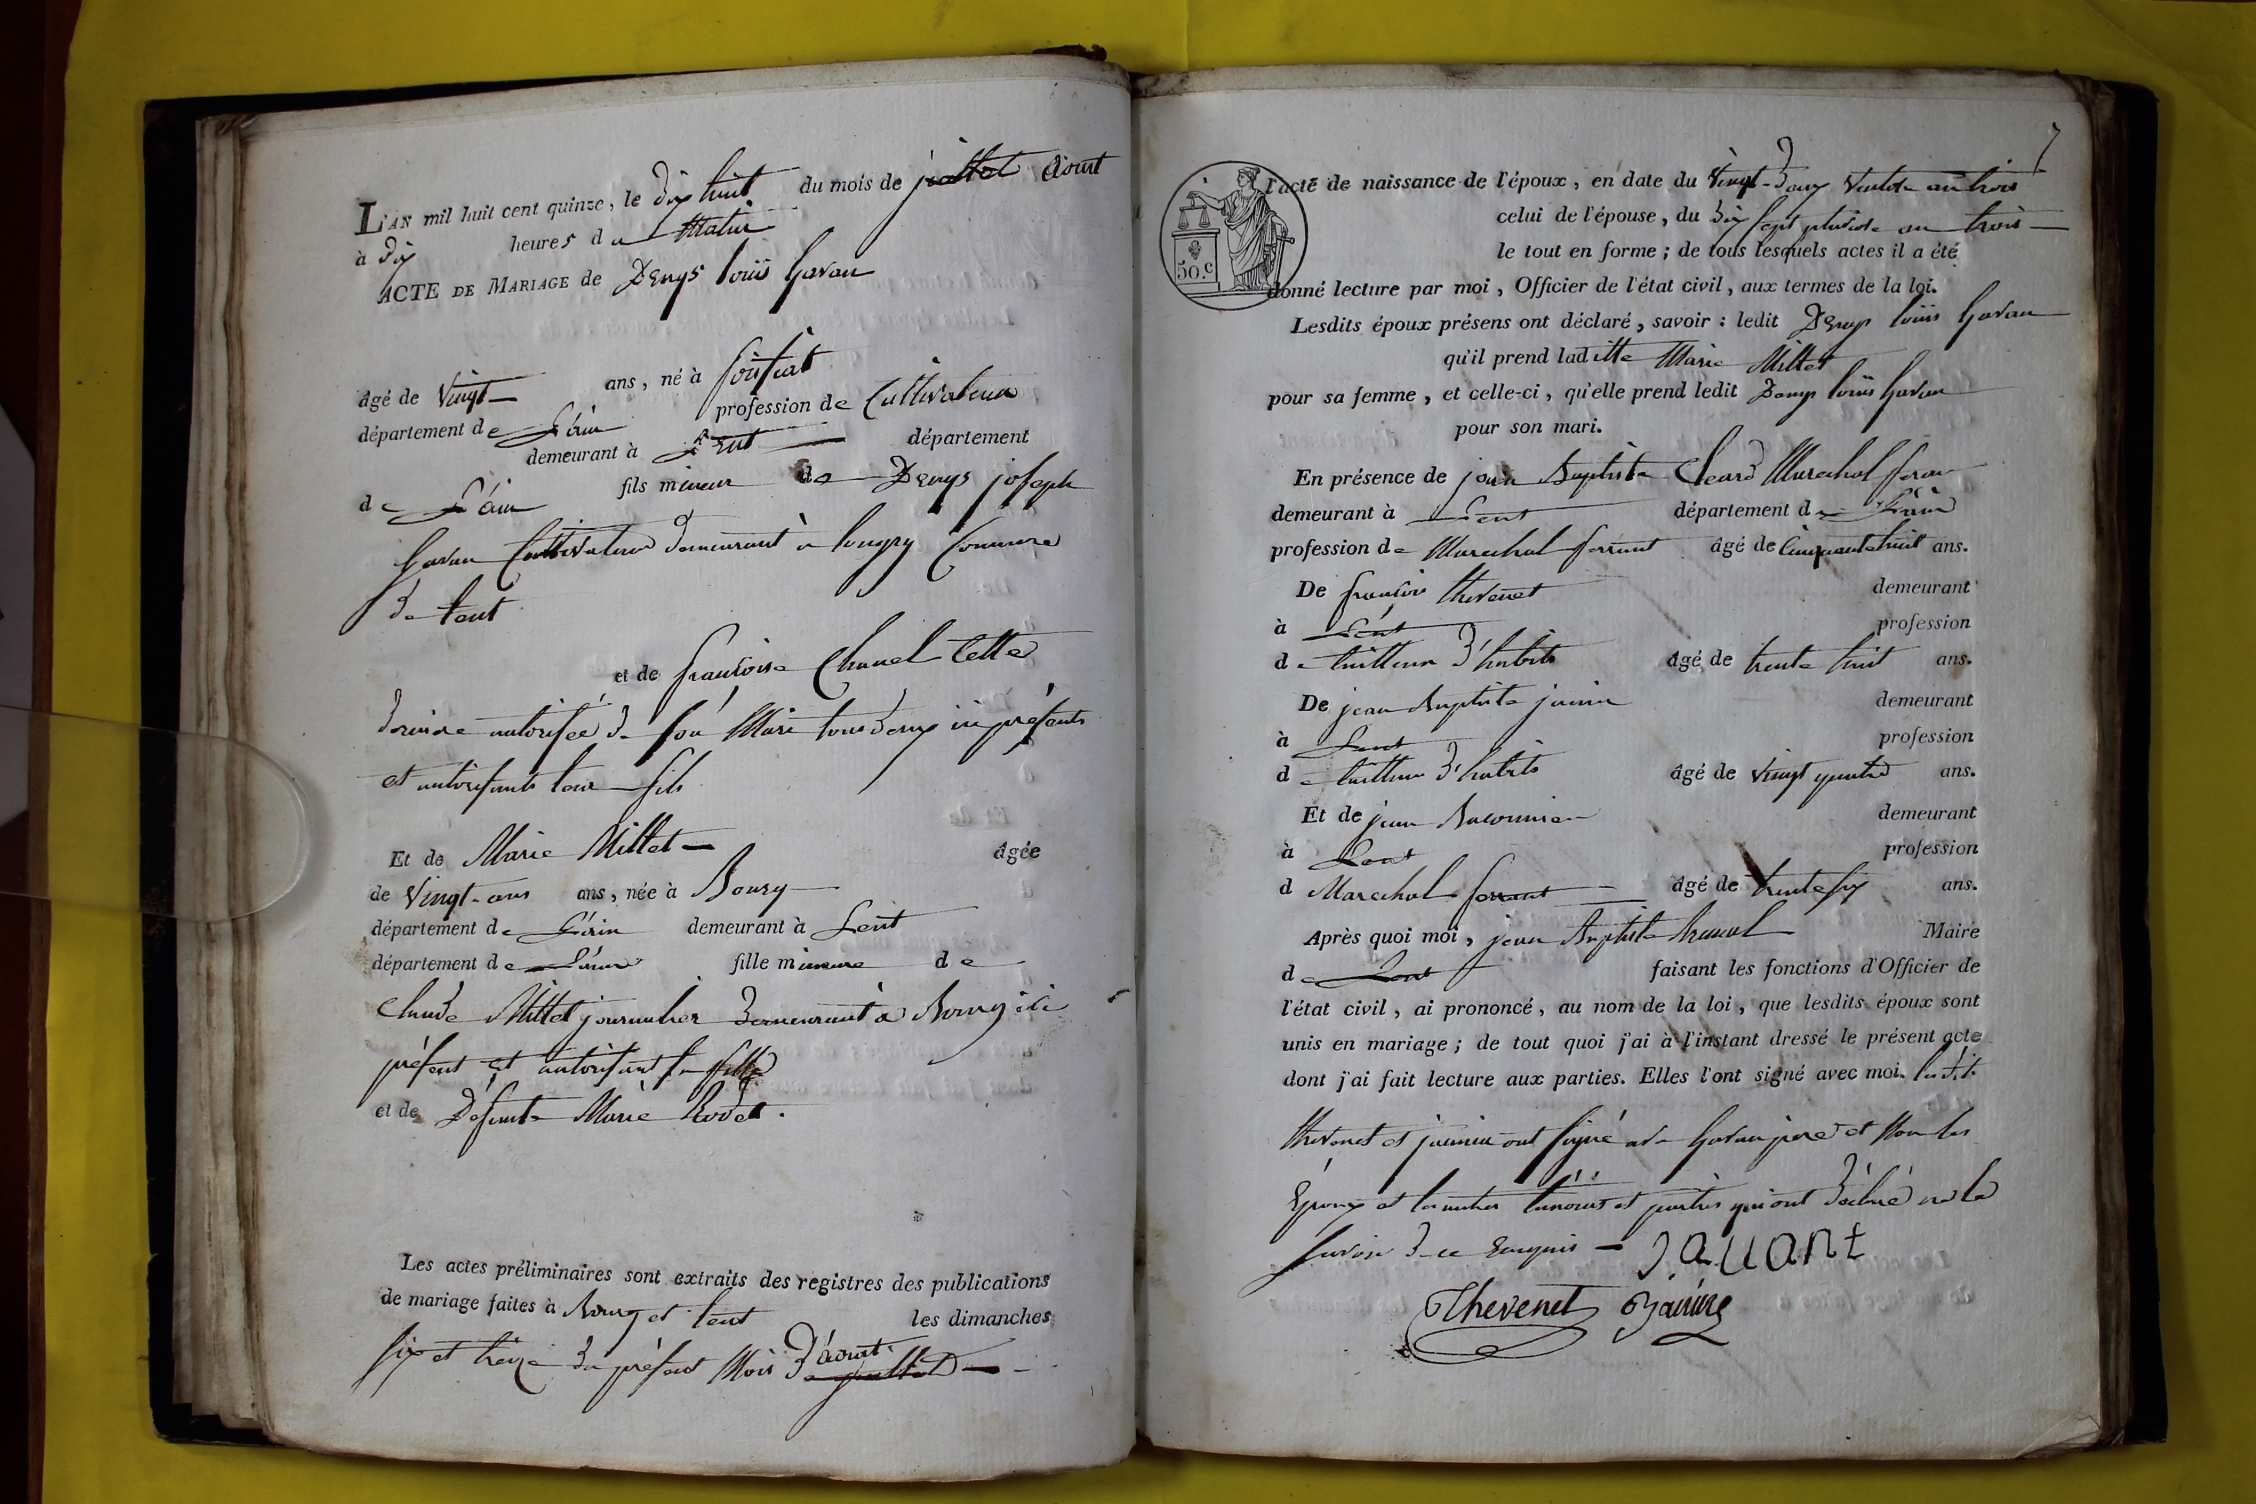 L'AN mil huit cent quinze, le dix huit du mois de juillet aoust
à dix heures du matin
ACTE DE MARIAGE de Denys louis Gavan
âgé de Vingt ans, né à foissiat
département de L'ain profession de Cultivateur
demeurant à Lent département
de L'ain fils mineur de Denys joseph
Gavan Cultivateur demeurant à longry Commune
de lent
et de françoise Chanel Cette
derniere autorisée de son Mari tous deux ici présents
et autorisants leur fils
Et de Marie Millet âgée
de Vingt ans ans, née à Bourg
département de L'ain demeurant à Lent
département de L'ain fille mineure de
Claude Millet journalier demeurant à Bourg ici
présent et autorisant sa fille
et de Défunte Marie Rodet.
Les actes préliminaires sont extraits des registres des publications
de mariage faites à Bourg et lent les dimanches
six et treize du présent Mois d'aoust de juillet
7
50.c
l'acte de naissance de l'époux, en date du Vingt-deux Ventose an trois
celui de l'épouse, du dix sept pluviose an trois
le tout en forme; de tous lesquels actes il a été
donné lecture par moi, Officier de l'état civil, aux termes de la loi.
Lesdits époux présens ont déclaré, savoir: ledit Denys louis Gavan
qu'il prend laditte Marie Millet
pour sa femme, et celle-ci, qu'elle prend ledit Denys louis Gavan
pour son mari.
En présence de jean Baptiste Marechal feran
demeurant à Lent département de L'ain
profession de Marechal ferrant âgé de Cinquante huit ans.
De françois thevenet demeurant
à Lent profession
de tailleur d'habits âgé de trente huit ans.
De jean Baptiste janin demeurant
à Lent profession
de tailleur d'habits âgé de vingt quatre ans.
Et de jean demeurant
à Lent profession
d Marechal ferrant âgé de trente six ans.
Après quoi moi, jean Baptiste Maire
de Lent faisant les fonctions d'Officier de
l'état civil, ai prononcé, au nom de la loi, que lesdits époux sont
unis en mariage; de tout quoi j'ai à l'instant dressé le présent acte
dont j'ai fait lecture aux parties. Elles l'ont signé avec moi. lesdits
thevenet et ont signé avec Gavan pere et non les
Epoux et les autres temoins et parties qui ont déclaré ne le
savoir de ce enquis — J. auant
Thevenet